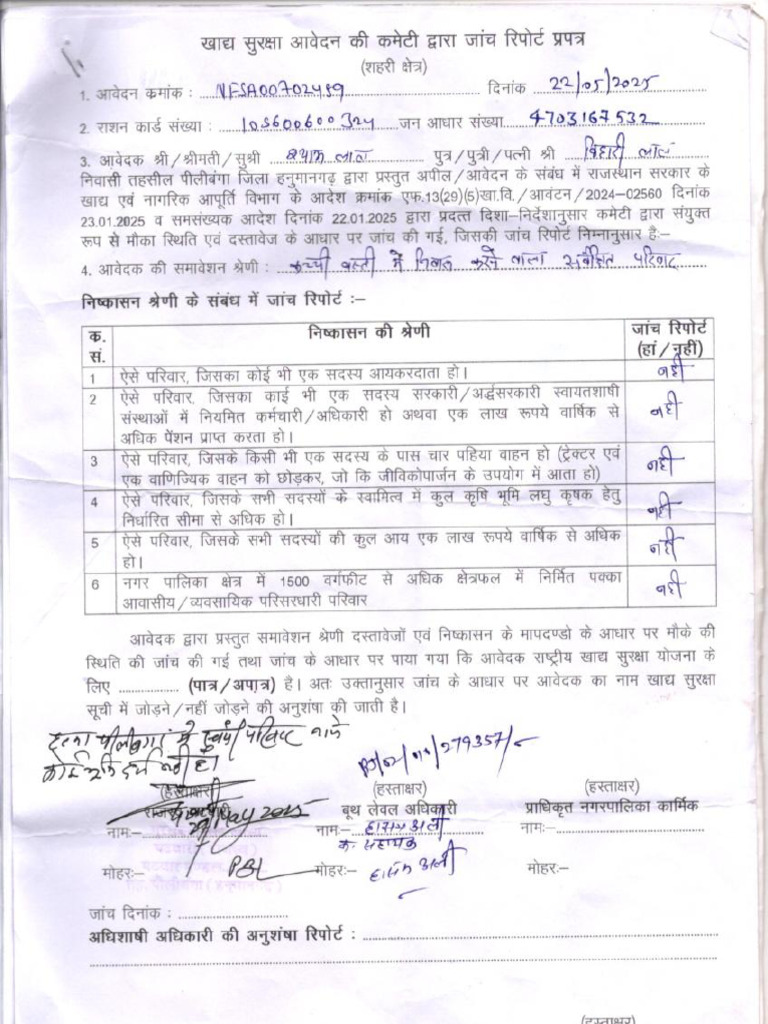 खाद्य सुरक्षा आवेदन की कमेटी द्वारा जांच रिपोर्ट प्रपत्र
(शहरी क्षेत्र)
1. आवेदन क्रमांक : NFSA00702459 दिनांक 22/05/2025
2. राशन कार्ड संख्या : 105600600324 जन आधार संख्या 4703167532
3. आवेदक श्री/श्रीमती/सुश्री श्याम लाल पुत्र/पुत्री/पत्नी श्री बिहारी लाल
निवासी तहसील पीलीबंगा जिला हनुमानगढ़ द्वारा प्रस्तुत अपील/आवेदन के संबंध में राजस्थान सरकार के
खाद्य एवं नागरिक आपूर्ति विभाग के आदेश क्रमांक एफ.13(29)(5)खा.वि./आवंटन/2024-02560 दिनांक
23.01.2025 व समसंख्यक आदेश दिनांक 22.01.2025 द्वारा प्रदत्त दिशा-निर्देशानुसार कमेटी द्वारा संयुक्त
रूप से मौका स्थिति एवं दस्तावेज के आधार पर जांच की गई, जिसकी जांच रिपोर्ट निम्नानुसार है:-
4. आवेदक की समावेशन श्रेणी : कच्ची बस्ती में निवास करने वाला सर्वेक्षित परिवार
निष्कासन श्रेणी के संबंध में जांच रिपोर्ट :-
क. सं. निष्कासन की श्रेणी जांच रिपोर्ट (हां/नहीं)
1 ऐसे परिवार, जिसका कोई भी एक सदस्य आयकरदाता हो। नही
2 ऐसे परिवार, जिसका काई भी एक सदस्य सरकारी/अर्द्धसरकारी स्वायतशाषी
संस्थाओं में नियमित कर्मचारी/अधिकारी हो अथवा एक लाख रूपये वार्षिक से नही
अधिक पेंशन प्राप्त करता हो।
3 ऐसे परिवार, जिसके किसी भी एक सदस्य के पास चार पहिया वाहन हो (ट्रेक्टर एवं
एक वाणिज्यिक वाहन को छोड़कर, जो कि जीविकोपार्जन के उपयोग में आता हो) नही
4 ऐसे परिवार, जिसके सभी सदस्यों के स्वामित्व में कुल कृषि भूमि लघु कृषक हेतु
निर्धारित सीमा से अधिक हो। नही
5 ऐसे परिवार, जिसके सभी सदस्यों की कुल आय एक लाख रूपये वार्षिक से अधिक
हो। नही
6 नगर पालिका क्षेत्र में 1500 वर्गफीट से अधिक क्षेत्रफल में निर्मित पक्का
आवासीय/व्यवसायिक परिसरधारी परिवार नही
आवेदक द्वारा प्रस्तुत समावेशन श्रेणी दस्तावेजों एवं निष्कासन के मापदण्डो के आधार पर मौके की
स्थिति की जांच की गई तथा जांच के आधार पर पाया गया कि आवेदक राष्ट्रीय खाद्य सुरक्षा योजना के
लिए .............. (पात्र/अपात्र) है। अतः उक्तानुसार जांच के आधार पर आवेदक का नाम खाद्य सुरक्षा
सूची में जोड़ने/नहीं जोड़ने की अनुशंषा की जाती है।
(हस्ताक्षर) (हस्ताक्षर) (हस्ताक्षर)
बूथ लेवल अधिकारी प्राधिकृत नगरपालिका कार्मिक
नाम:- नाम:- नाम:-
क. सहायक
मोहर:- PBL मोहर:- मोहर:-
जांच दिनांक :
अधिशाषी अधिकारी की अनुशंषा रिपोर्ट :
(हस्ताक्षर)